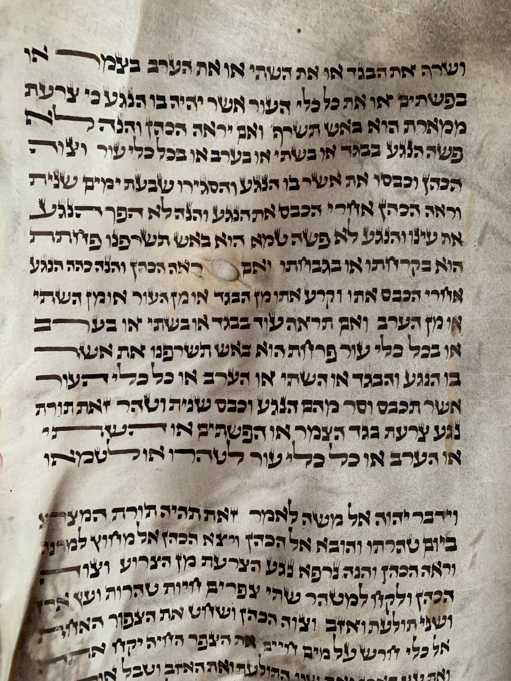 ושרף את הבגד או את השתי או את הערב בצמר או
בפשתים או את כל כלי העור אשר יהיה בו הנגע כי צרעת
ממארת הוא באש תשרף ואם יראה הכהן והנה לא
פשה הנגע בבגד או בשתי או בערב או בכל כלי עור וצוה
הכהן וכבסו את אשר בו הנגע והסגירו שבעת ימים שנית
וראה הכהן אחרי הכבס את הנגע והנה לא הפך הנגע
את עינו והנגע לא פשה טמא הוא באש תשרפנו פחתת
הוא בקרחתו או בגבחתו ואם ראה הכהן והנה כהה הנגע
אחרי הכבס אתו וקרע אתו מן הבגד או מן העור או מן השתי
או מן הערב ואם תראה עוד בבגד או בשתי או בערב
או בכל כלי עור פרחת הוא באש תשרפנו את אשר
בו הנגע והבגד או השתי או הערב או כל כלי העור
אשר תכבס וסר מהם הנגע וכבס שנית וטהר זאת תורת
נגע צרעת בגד הצמר או הפשתים או השתי
או הערב או כל כלי עור לטהרו או לטמאו
וידבר יהוה אל משה לאמר זאת תהיה תורת המצרע
ביום טהרתו והובא אל הכהן ויצא הכהן אל מחוץ למחנה
וראה הכהן והנה נרפא נגע הצרעת מן הצרוע וצוה
הכהן ולקח למטהר שתי צפרים חיות טהרות ועץ ארז
ושני תולעת ואזב וצוה הכהן ושחט את הצפור האחת
אל כלי חרש על מים חיים את הצפר החיה יקח
ואת שני התולעת ואת האזב וטבל